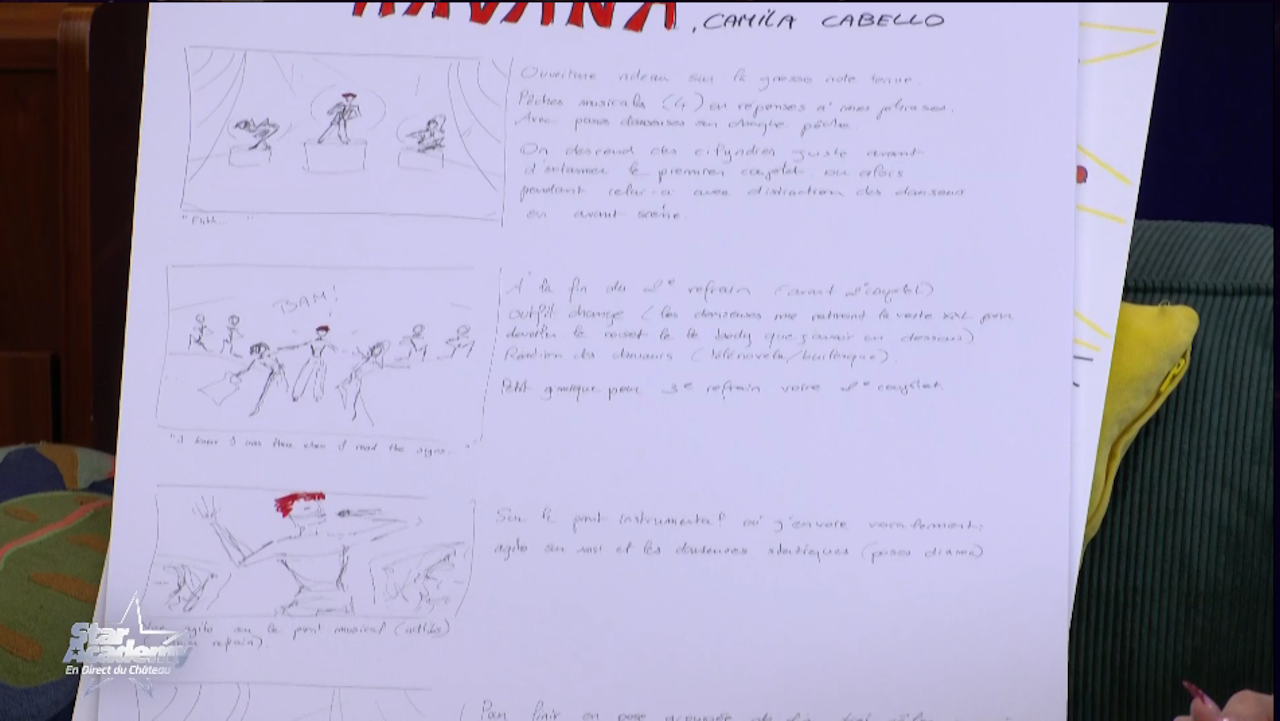 HAVANA, CAMILA CABELLO
Ouverture rideau sur la grosse note tenue.
Pêches musicales (4) en réponses à mes phrases.
Avec poses danseuses sur chaque pêche
On descend des cilyndres juste avant
d'entamer le premier couplet, ou alors
pendant celui-ci avec distraction des danseurs
en avant scène.
BAM!
À la fin du 2e refrain (avant 2e couplet)
outfit change (les danseuses me retirent la veste XXL pour
le body que j'aurai en dessous)
Réaction des danseurs (télénovela/burlesque).
pour 3e refrain voire 2e couplet
"I knew I was there when I read the signs. "
Sur le pont instrumental où j'envoie vocalement:
agito sur moi et les danseuses statiques (poses divas)
agito sur le pont musical (adlibs)
refrain).
Pour finir en pose groupée
Star
Academy
En Direct du Château